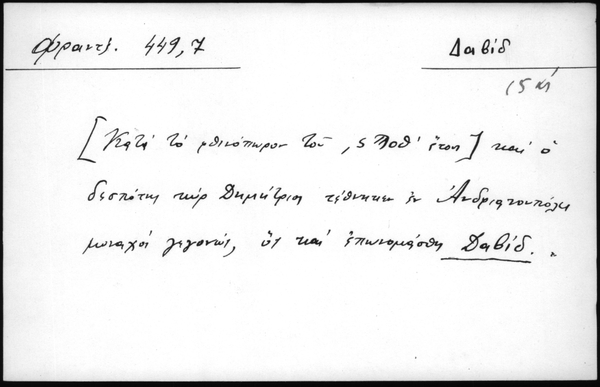 Φραντζ. 449,7
Δαβίδ
15 αἰ
[Κατά τό φθινόπωρον τοῦ ,ςϠοθʹ ἔτους] καί ὁ
δεσπότης κύρ Δημήτριος τέθνηκεν ἐν Ἀνδριανουπόλει
μοναχός γεγονώς, ὅς καί ἐπωνομάσθη Δαβίδ.